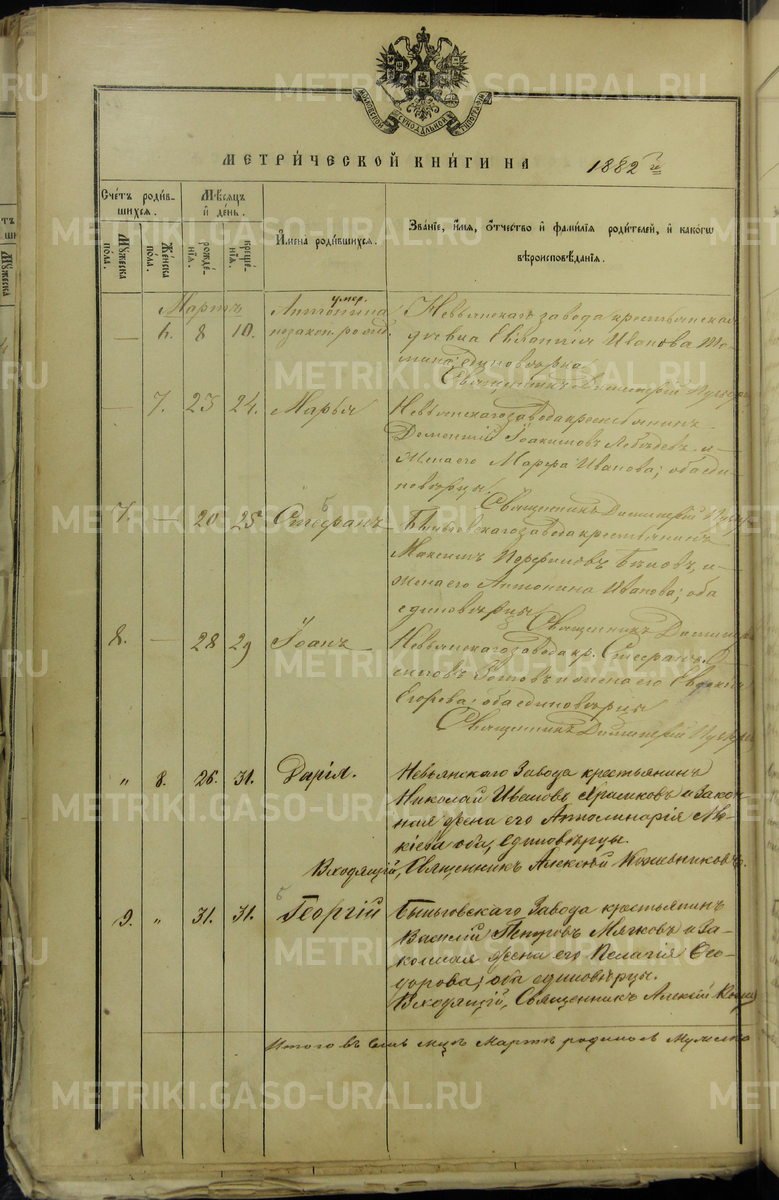 МОСКОВСКОЙ СѴНОДАЛЬНОЙ ТИПОГРАФІИ
МЕТРИ́ЧЕСКОЙ КНИ́ГИ НА 1882 го
Счетъ роди́вшихсѧ.
Мꙋжеска пола.
Женска пола.
Мѣсѧцъ и҆ день.
рожденїѧ.
крещенїѧ.
И҆мена роди́вшихсѧ.
Зва́нїе, и҆́мѧ, ѻ҆́тчество и҆ фами́лїѧ роди́телей, и҆ какогѡ вѣроисповѣ́данїѧ.
Мартъ
умер.
— 6. 8 10. Антонина незакон. рожд.
Невьянскаго завода крестьянская
Иванова
единовѣрка
Священникъ Димитрій
— 7. 23 24. Марья
Невьянскаго завода крестьянинъ
Дометій Іоакимовъ Лебедевъ и
жена его Марѳа Иванова; оба еди-
новѣрцы.
Священникъ Димитрій
7. — 20 25 Стефанъ
Быньговскаго завода крестьянинъ
Максимъ Бѣловъ, и
жена его Антонина Иванова; оба
единовѣрцы
Священникъ Димитрій
8. — 28 29 Іоанъ
Невьянскаго завода кр. Стефанъ
и жена его
Егорова; оба единовѣрцы
Священникъ Димитрій
" 8. 26. 31. Дарія.
Невьянскаго Завода крестьянинъ
Николай Ивановъ и Закон-
ная жена его Апполинарія
оба, Единовѣрцы.
Входящій, Священникъ Алексѣй Кожевниковъ.
9. " 31. 31. Георгій
Быньговскаго Завода крестьянин
Василій Петровъ Мягковъ и За-
конная жена его Пелагія Ѳео-
дорова; оба единовѣрцы.
Входящій, Священникъ Алексѣй
Итого въ мцѣ Мартѣ родилось Мужеска
METRIKI.GASO-URAL.RU